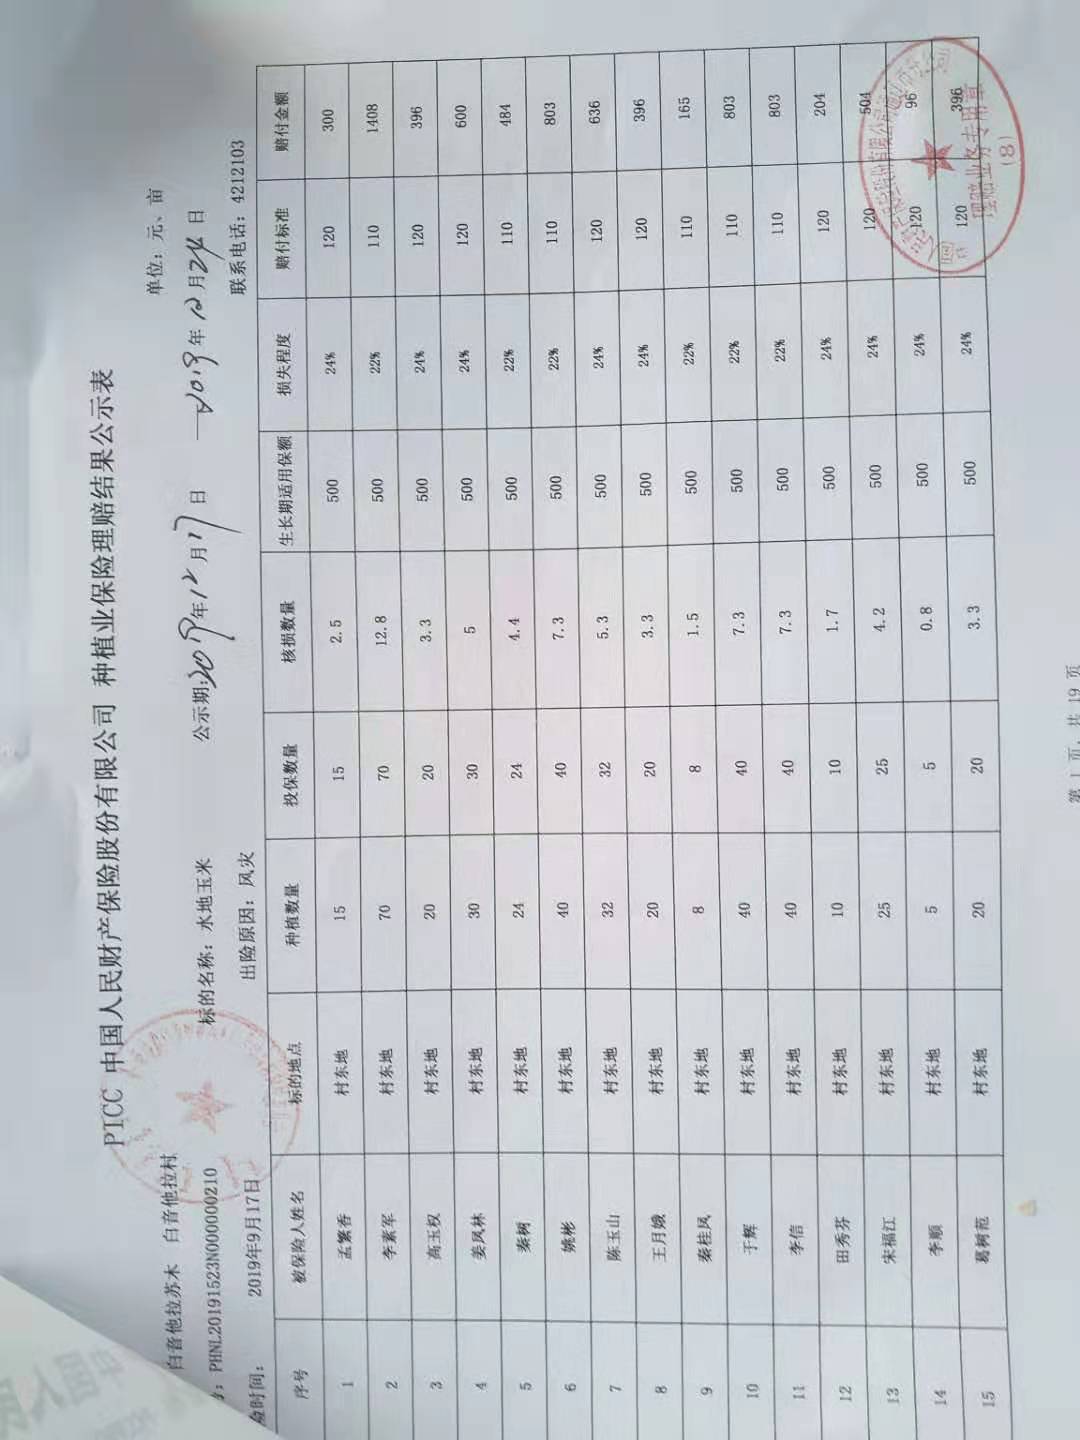 PICC 中国人民财产保险股份有限公司 种植业保险理赔结果公示表
白音他拉苏木 白音他拉村 单位：元、亩
号：PHNL20191523N000000210 标的名称：水地玉米 公示期：2019年12月17日 — 2019年12月24日
险时间： 2019年9月17日 出险原因：风灾 联系电话：4212103
序号 被保险人姓名 标的地点 种植数量 投保数量 核损数量 生长期适用保额 损失程度 赔付标准 赔付金额
1 孟繁香 村东地 15 15 2.5 500 24% 120 300
2 李素军 村东地 70 70 12.8 500 22% 110 1408
3 高玉权 村东地 20 20 3.3 500 24% 120 396
4 姜凤林 村东地 30 30 5 500 24% 120 600
5 秦树 村东地 24 24 4.4 500 22% 110 484
6 姚彬 村东地 40 40 7.3 500 22% 110 803
7 陈玉山 村东地 32 32 5.3 500 24% 120 636
8 王月娥 村东地 20 20 3.3 500 24% 120 396
9 秦桂凤 村东地 8 8 1.5 500 22% 110 165
10 于辉 村东地 40 40 7.3 500 22% 110 803
11 李信 村东地 40 40 7.3 500 22% 110 803
12 田秀芬 村东地 10 10 1.7 500 24% 120 204
13 宋福江 村东地 25 25 4.2 500 24% 120 504
14 李顺 村东地 5 5 0.8 500 24% 120 96
15 葛树范 村东地 20 20 3.3 500 24% 120 396
理赔业务专用章
(8)
第 1 页，共 19 页
中国人民